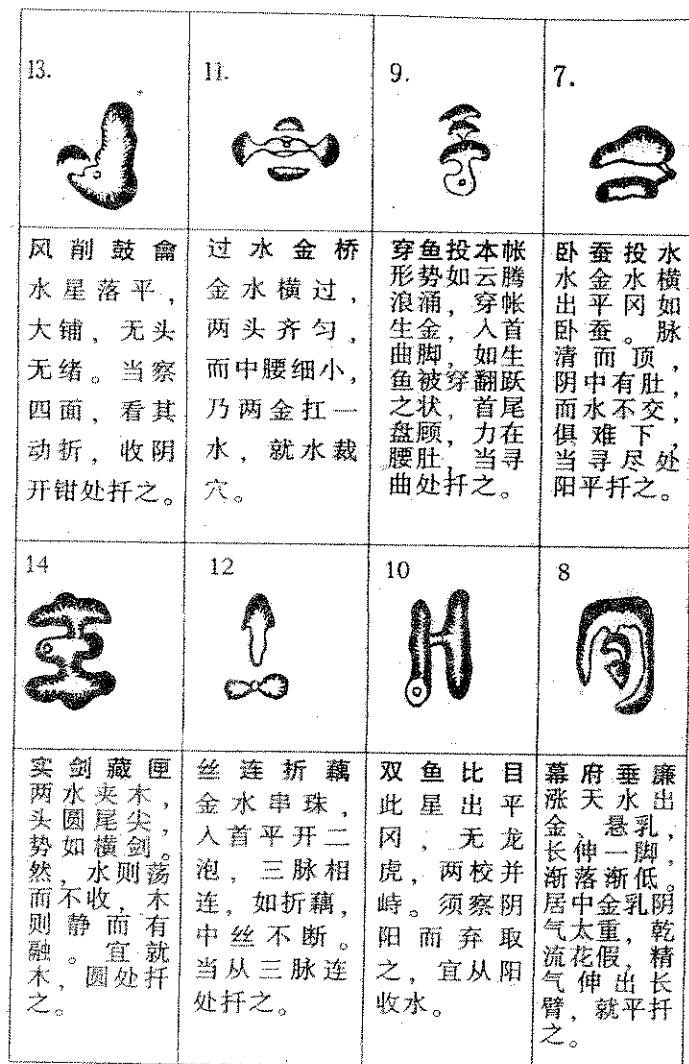 13.
风削鼓龠
水星落平，
大铺，无头
无绪。当察
四面，看其
动折，收阴
开钳处扦之。
11.
过水金桥
金水横过，
两头齐匀，
而中腰细小，
乃两金扛一
水，就水裁
穴。
9.
穿鱼投本帐
形势如云腾
浪涌，穿帐
生金，入首
曲脚，如生
鱼被穿翻跃
之状，首尾
盘顾，力在
腰肚，当寻
曲处扦之。
7.
卧蚕投水
水金水横
出平冈如
卧蚕。脉
清而顶，
阴中有肚，
而水不交，
俱难下，
当寻尽处
阳平扦之。
14
实剑藏匣
两水夹木，
头圆尾尖，
势如横剑。
然，水则荡
而不收，木
则静而有
融。宜就
木，圆处扦
之。
12
丝连折藕
金水串珠，
入首平开二
泡，三脉相
连，如折藕，
中丝不断。
当从三脉连
处扦之。
10
双鱼比目
此星出平
冈，无龙
虎，两校并
峙。须察阴
阳而弃取
之，宜从阳
收水。
8
幕府垂廉
涨天水出
金、悬乳，
长伸一脚，
渐落渐低。
居中金乳阴
气太重，乾
流花假，精
气伸出长
臂，就平扦
之。